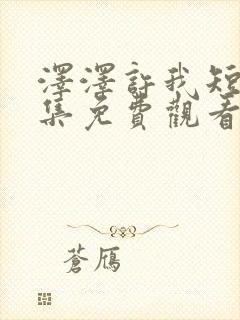 澤澤許我短
集免費觀看
蒼鴈